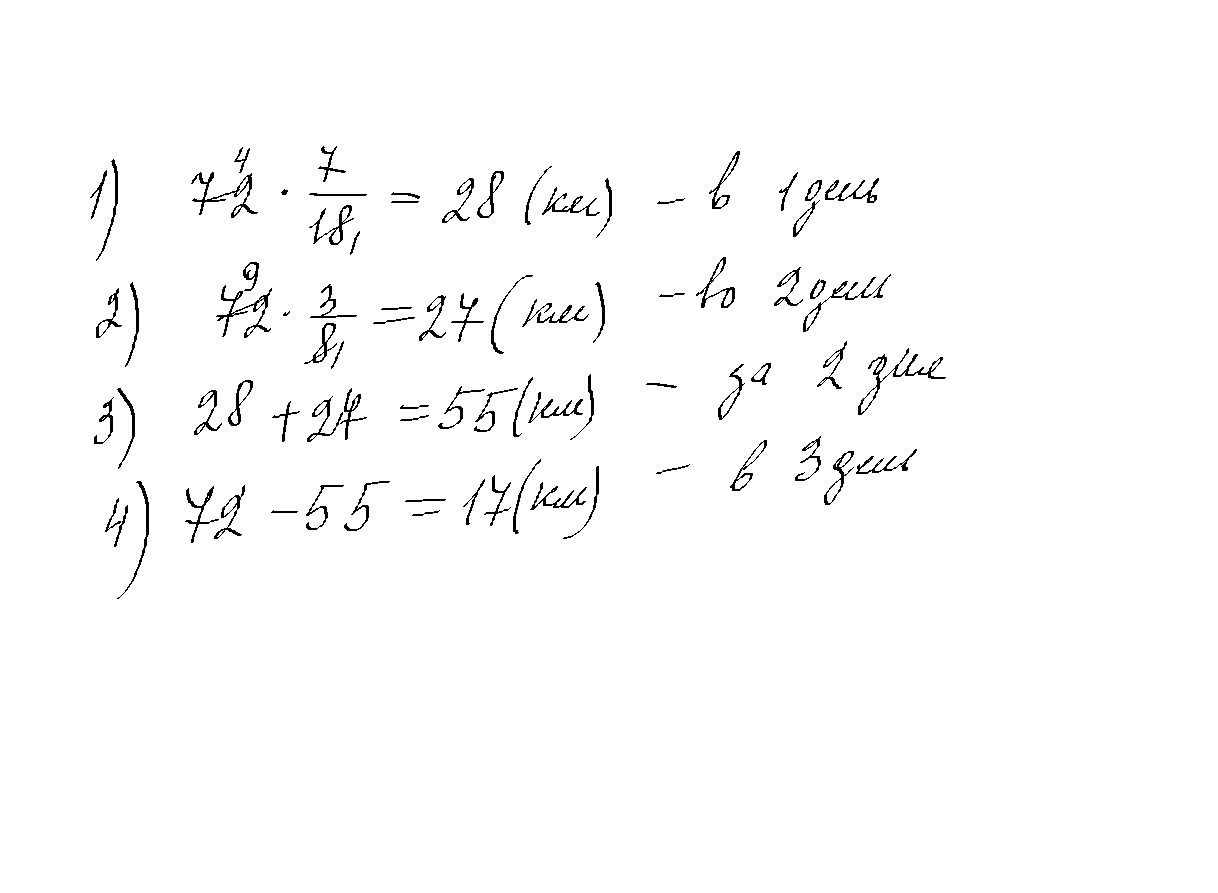 1) 72⁴ · 7/18₁ = 28 (км) – в 1 день
2) 72⁹ · 3/8₁ = 27 (км) – во 2 день
3) 28 + 27 = 55 (км) – за 2 дня
4) 72 – 55 = 17 (км) – в 3 день